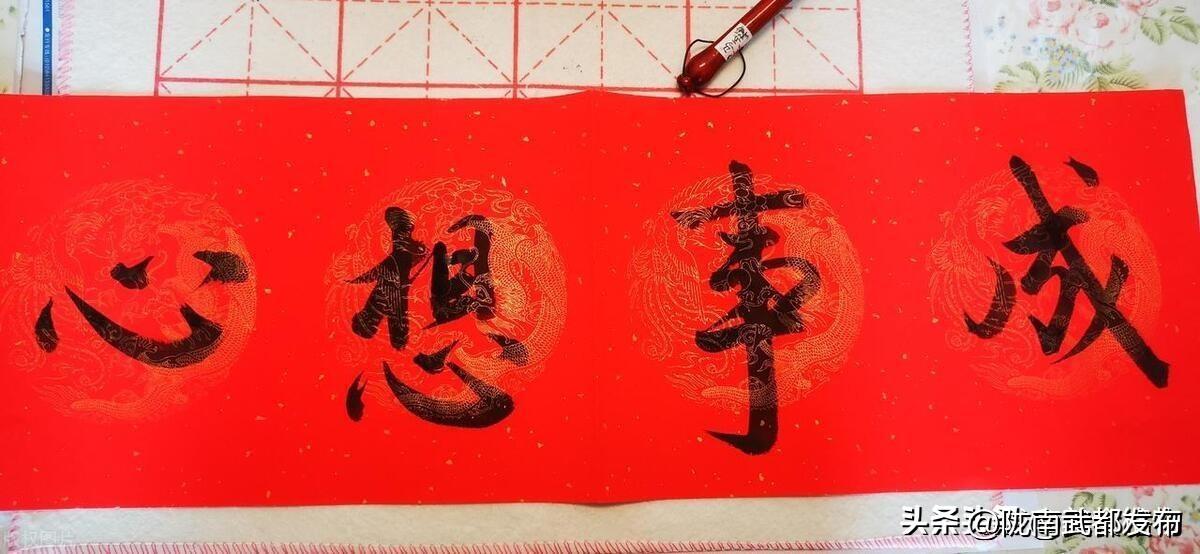 心想事成
头条 @陇南武都发布